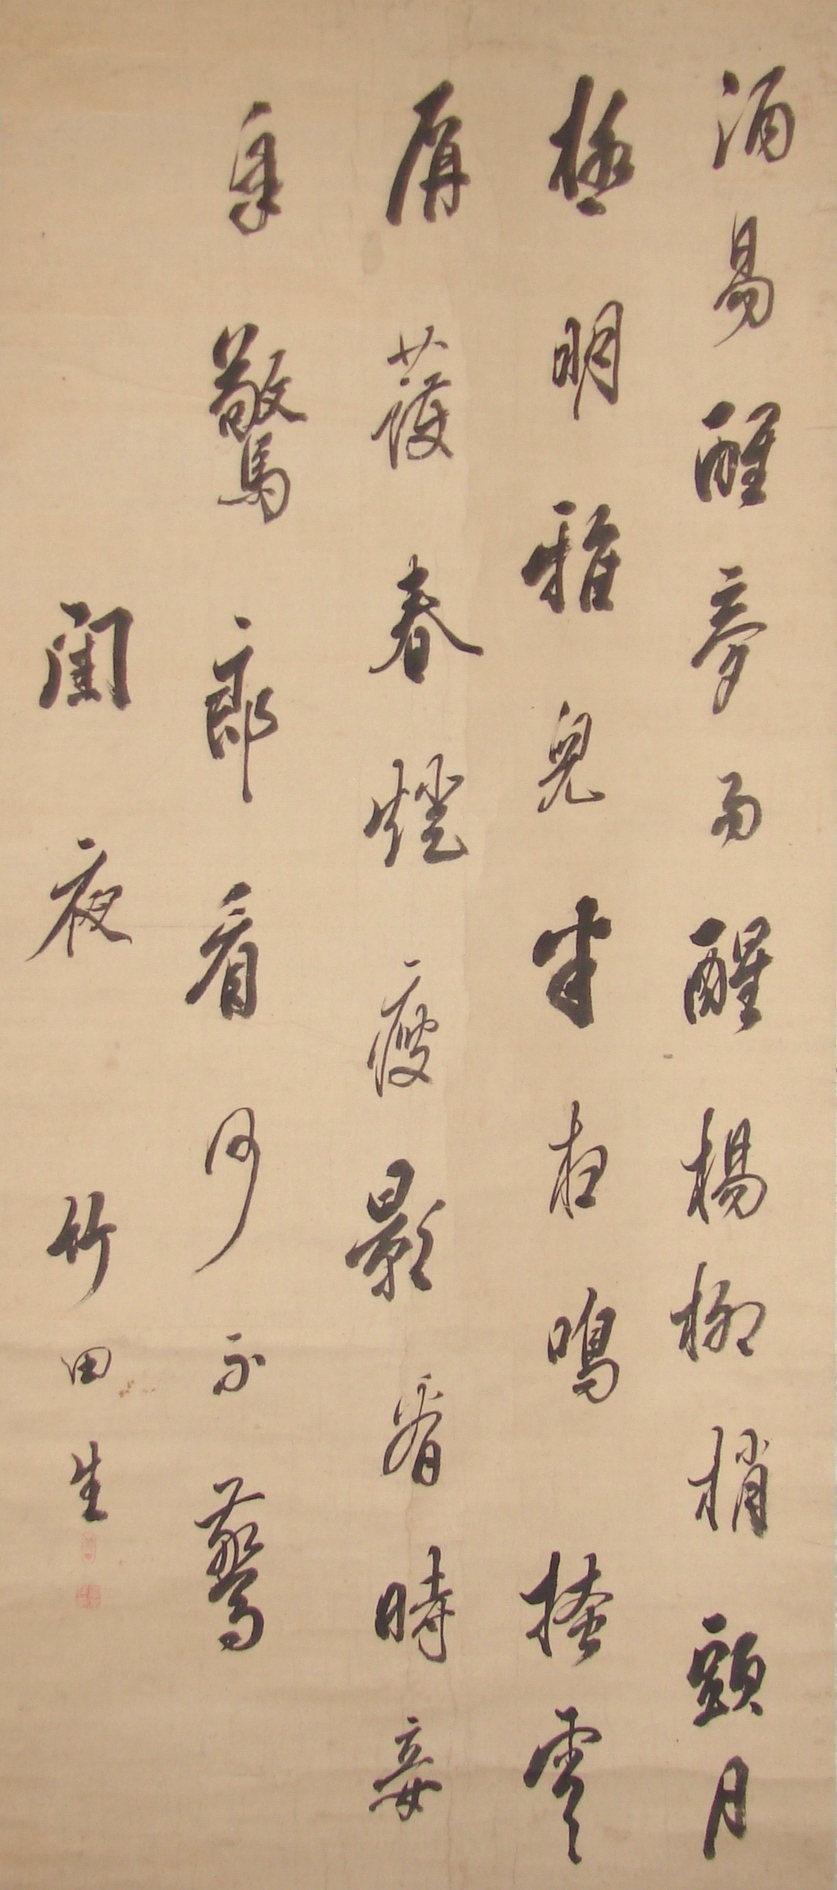 酒易醒夢易醒楊柳梢頭月
極明雅兒半夜鳴掩雲
屏護春燈瘦影看時妾
自驚郎看何不驚
閨夜 竹田生